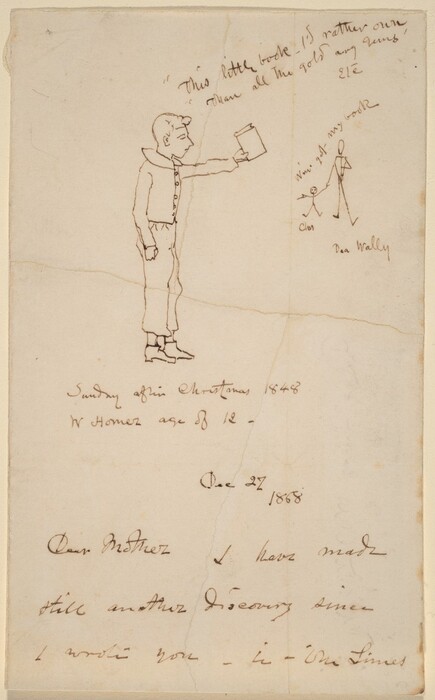 "This little book - I'd rather own
"Than all the gold any
Etc
my book
Char
Wally
Sunday after Christmas 1848
W Homer age of 12 -
Dec 27
1868
Dear Mother I have made
still another discovery since
I wrote you - in - One Times